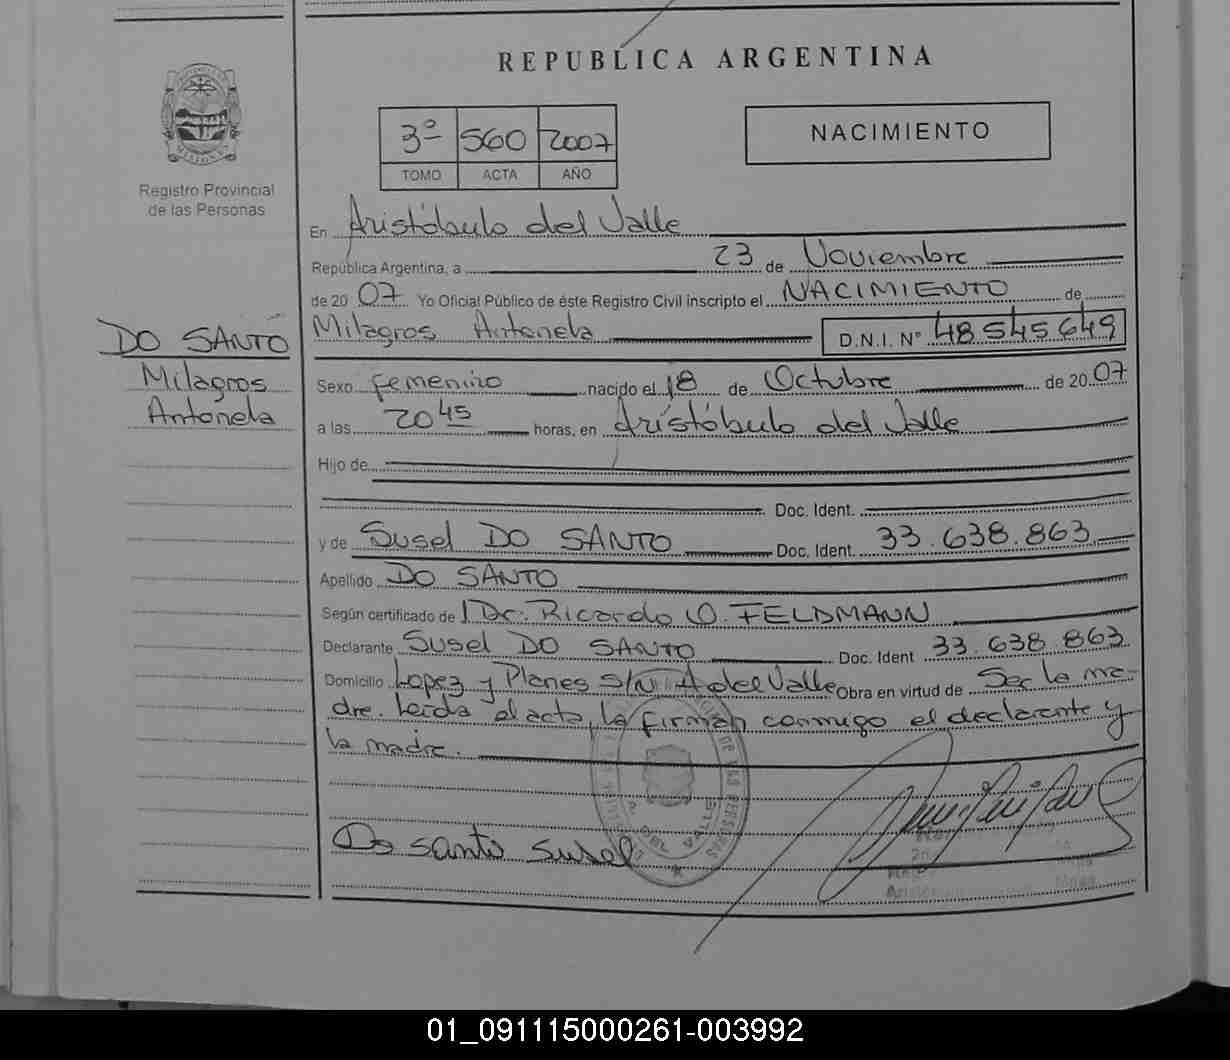 REPUBLICA ARGENTINA
PROVINCIA DE
MISIONES
Registro Provincial
de las Personas
3º 560 2007
TOMO ACTA AÑO
NACIMIENTO
En Aristóbulo del Valle
República Argentina, a 23 de Noviembre
de 2007 Yo Oficial Público de éste Registro Civil inscripto el NACIMIENTO de
Milagros Antonela D.N.I. Nº 48545649
DO SANTO
Milagros
Antonela
Sexo femenino nacido el 18 de Octubre de 2007
a las 20 45 horas, en Aristóbulo del Valle
Hijo de
Doc. Ident.
y de Susel DO SANTO Doc. Ident. 33.638.863
Apellido DO SANTO
Según certificado de Dr. Ricardo O. FELDMANN
Declarante Susel DO SANTO Doc. Ident 33.638.863
Domicilio Lopez y Planes S/Nº A del Valle Obra en virtud de Ser la ma-
dre. Leida el acta, la firman conmigo el declarante y
la madre.
DE LAS PERSONAS
A. DEL VALLE
Do santo Susel
01_091115000261-003992